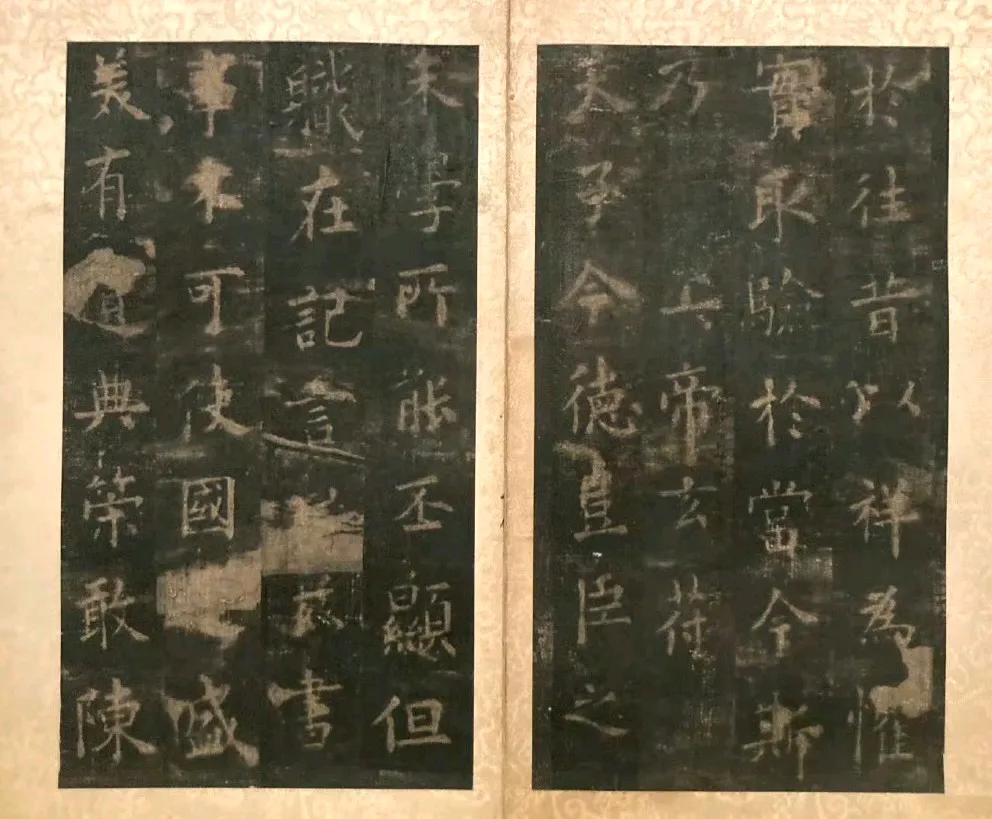 於往昔以祥為惟
實取驗於當今斯
乃上帝玄符
天子令德豈臣之
末學所能丕顯但
職在記言茲書
事不可使國之盛
美有遺典策敢陳